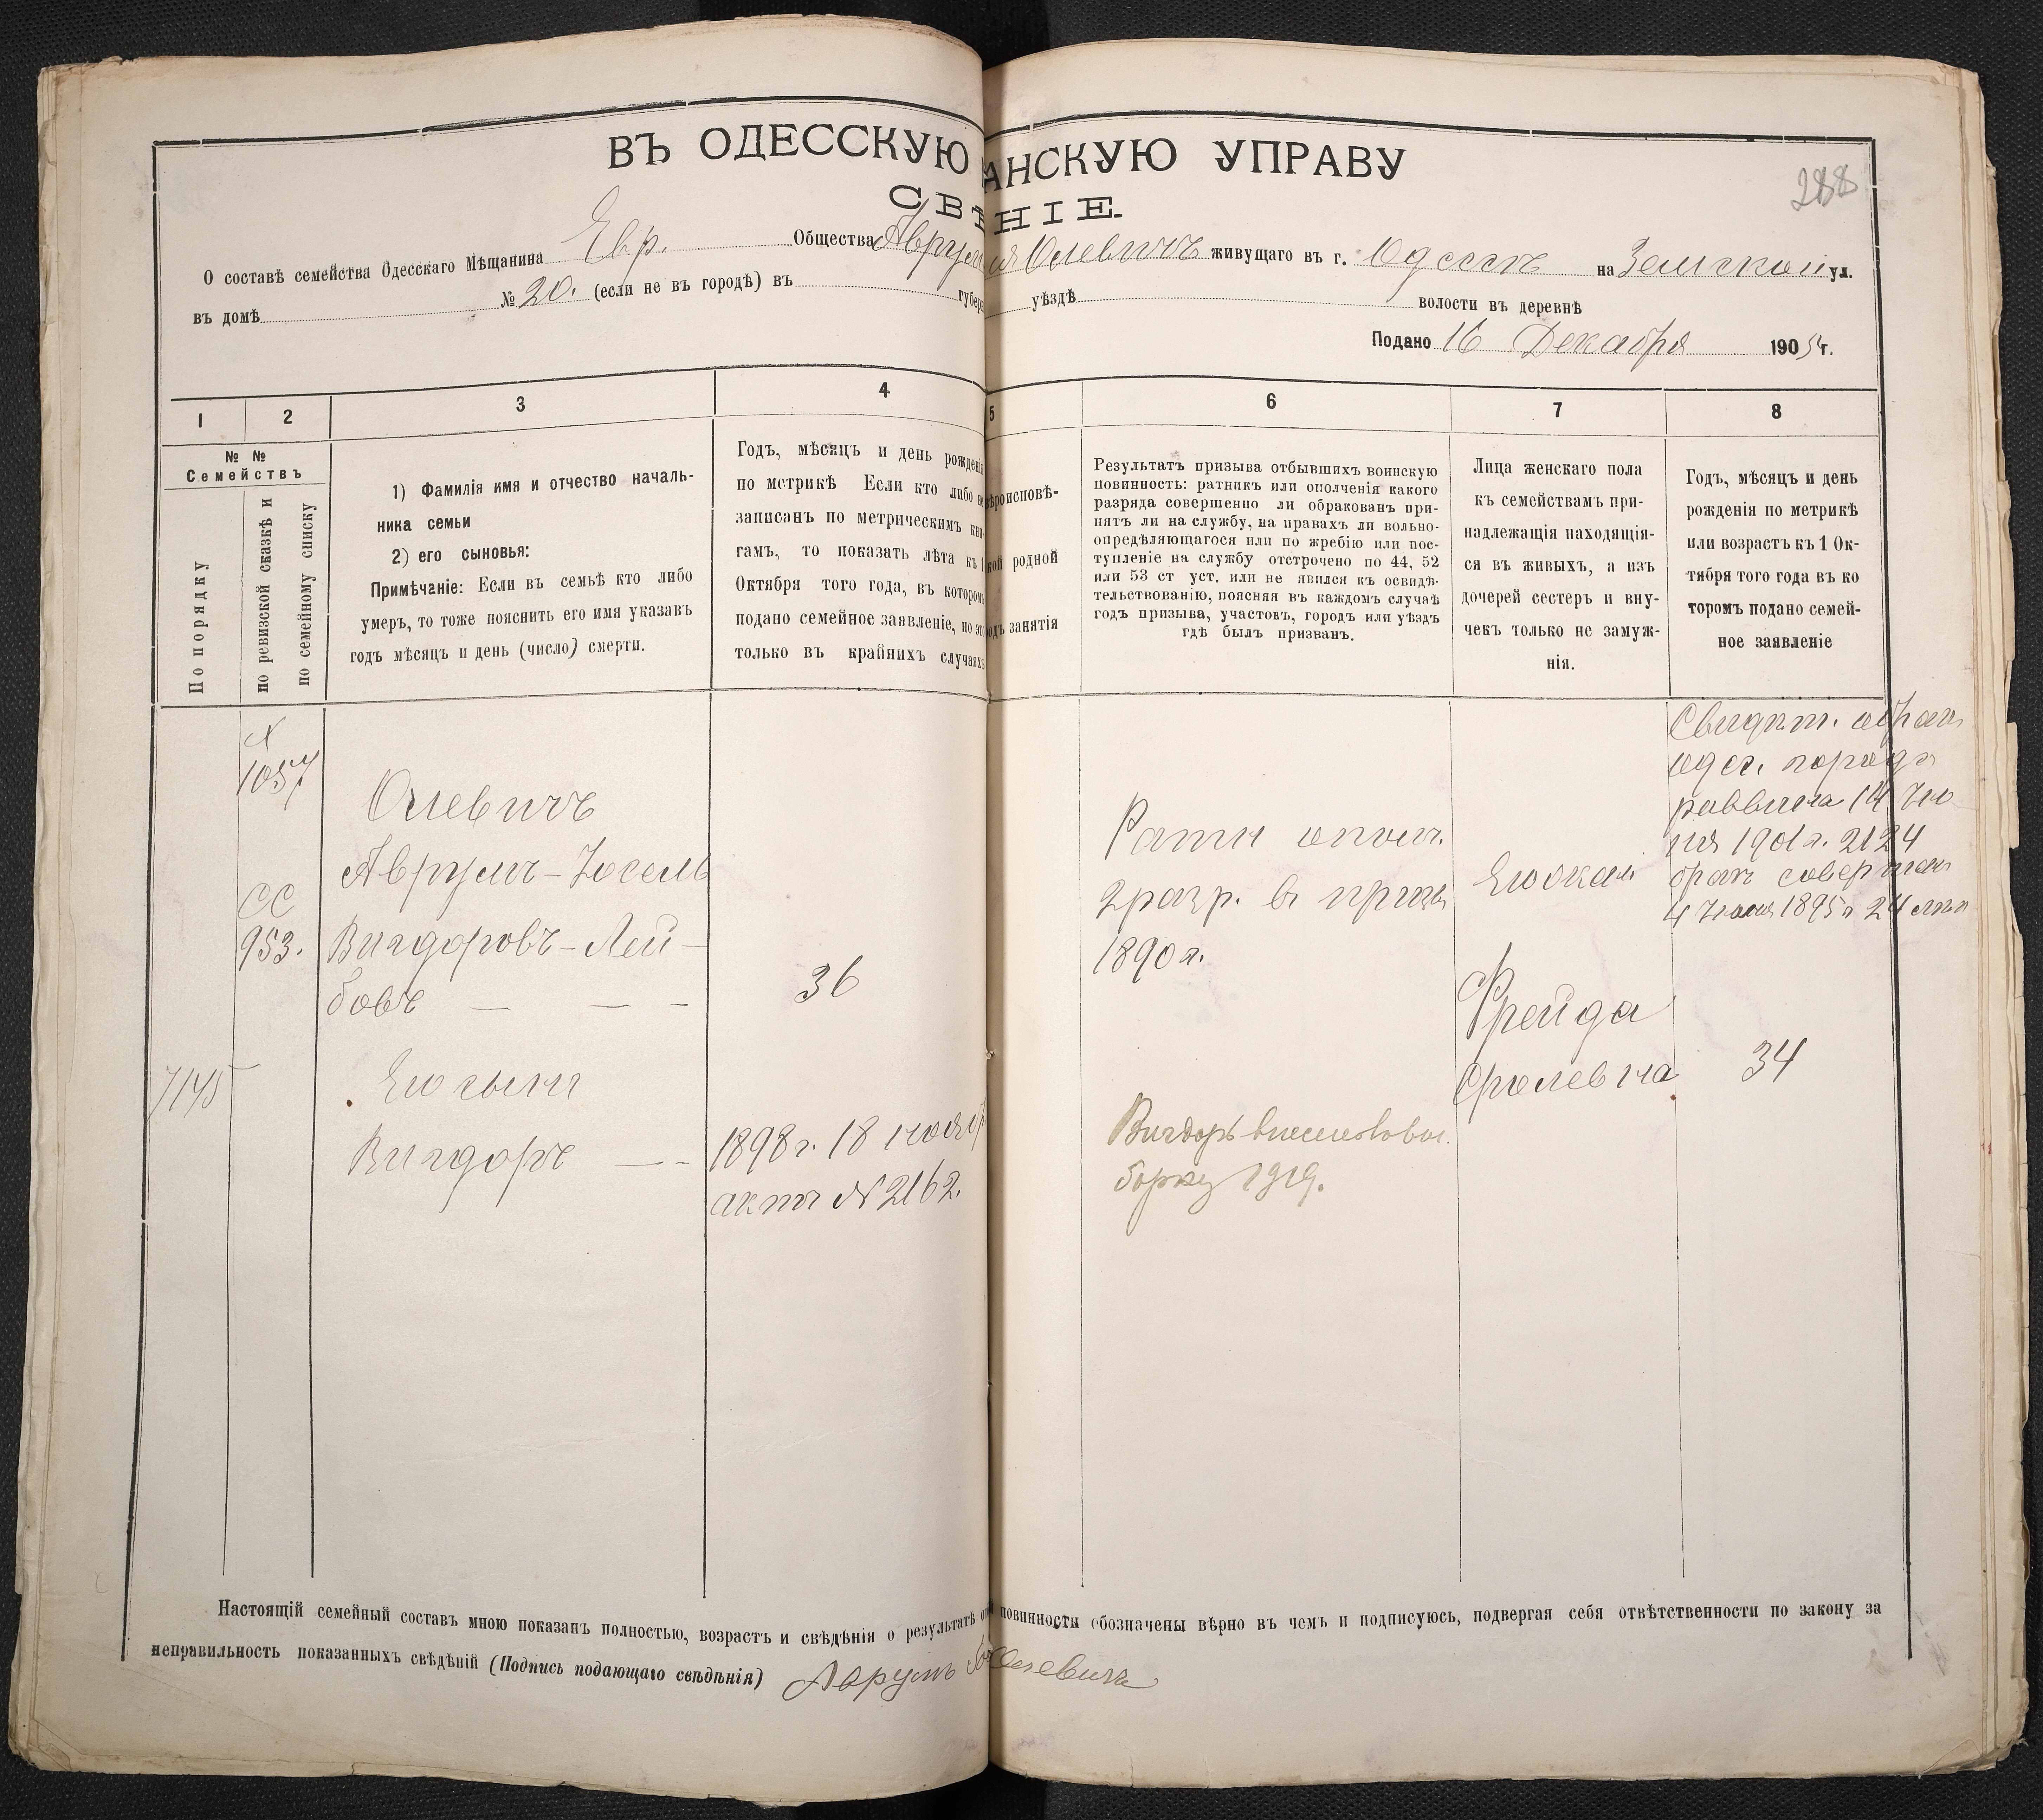 ВЪ ОДЕССКУЮ АНСКУЮ УПРАВУ
288
СВѢ НІЕ.
О составѣ семейства Одесскаго Мѣщанина Евр. Общества Аврум Олевичъ живущаго въ г. Одессѣ на Земской ул.
въ домѣ № 20. (если не въ городѣ) въ губер уѣздѣ волости въ деревнѣ
Подано 16 Декабря 1905 г.
1 2 3 4 5 6 7 8
№ №
Семействъ
По порядку
по ревизской сказкѣ и
по семейному списку
1) Фамилія имя и отчество началь-
ника семьи
2) его сыновья:
Примѣчаніе: Если въ семьѣ кто либо
умеръ, то тоже пояснить его имя указавъ
годъ мѣсяцъ и день (число) смерти.
Годъ, мѣсяцъ и день рожденія
по метрикѣ Если кто либо не
записанъ по метрическимъ кни-
гамъ, то показать лѣта къ 1
Октября того года, въ которомъ
подано семейное заявленіе, но это
только въ крайнихъ случаяхъ
ѣроисповѣ-
кой родной
одъ занятія
Результатъ призыва отбывшихъ воинскую
повинность: ратникъ или ополченія какого
разряда совершенно ли обракованъ при-
нятъ ли на службу, на правахъ ли вольно-
опредѣляющагося или по жребію или пос-
тупленіе на службу отстрочено по 44, 52
или 53 ст уст. или не явился къ освидѣ-
тельствованію, поясняя въ каждомъ случаѣ
годъ призыва, участокъ, городъ или уѣздъ
гдѣ былъ призванъ.
Лица женскаго пола
къ семействамъ при-
надлежащія находящія-
ся въ живыхъ, а изъ
дочерей сестеръ и вну-
чекъ только не замуж-
нія.
Годъ, мѣсяцъ и день
рожденія по метрикѣ
или возрастъ къ 1 Ок-
тября того года въ ко
торомъ подано семей-
ное заявленіе
1057
СС
953.
7145
Олевичъ
Аврумъ-Іосель
Вигдоровъ-Лей-
бовъ — — -
Его сынъ
Вигдоръ — -
36
1898 г. 18 ноябр
актъ № 2162.
Ратн ополч.
2 разр. въ призывъ
1890 г.
Вигдоръ
борку 1919.
Его жена
Фрейда
Сролевна
Свидѣт. о брак.
одес. город.
раввина 14 Ію
ня 1901 г. 2124
бракъ совершен
4 Іюня 1895 г 24 лѣт
34
Настоящій семейный составъ мною показанъ полностью, возрастъ и свѣдѣнія о результатѣ от повинности обозначены вѣрно въ чемъ и подписуюсь, подвергая себя отвѣтственности по закону за
неправильность показанныхъ свѣдѣній (Подпись подающаго свѣдѣнія) Аврумъ Олевичъ